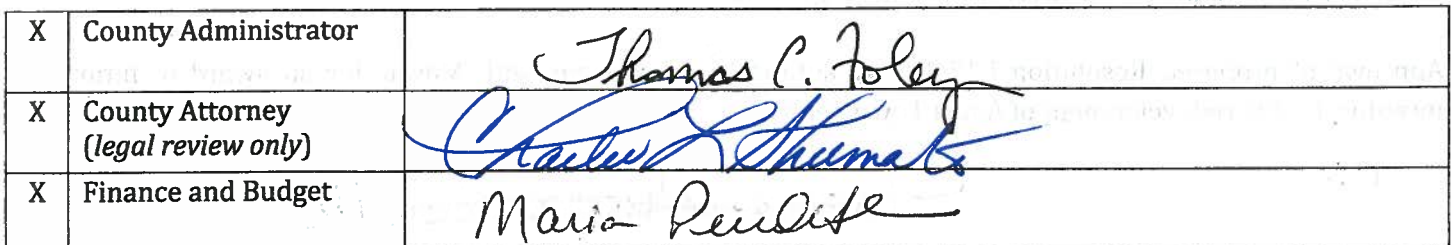 X County Administrator Thomas C. Foley
X County Attorney
(legal review only) Charles R Shumate
X Finance and Budget Maria